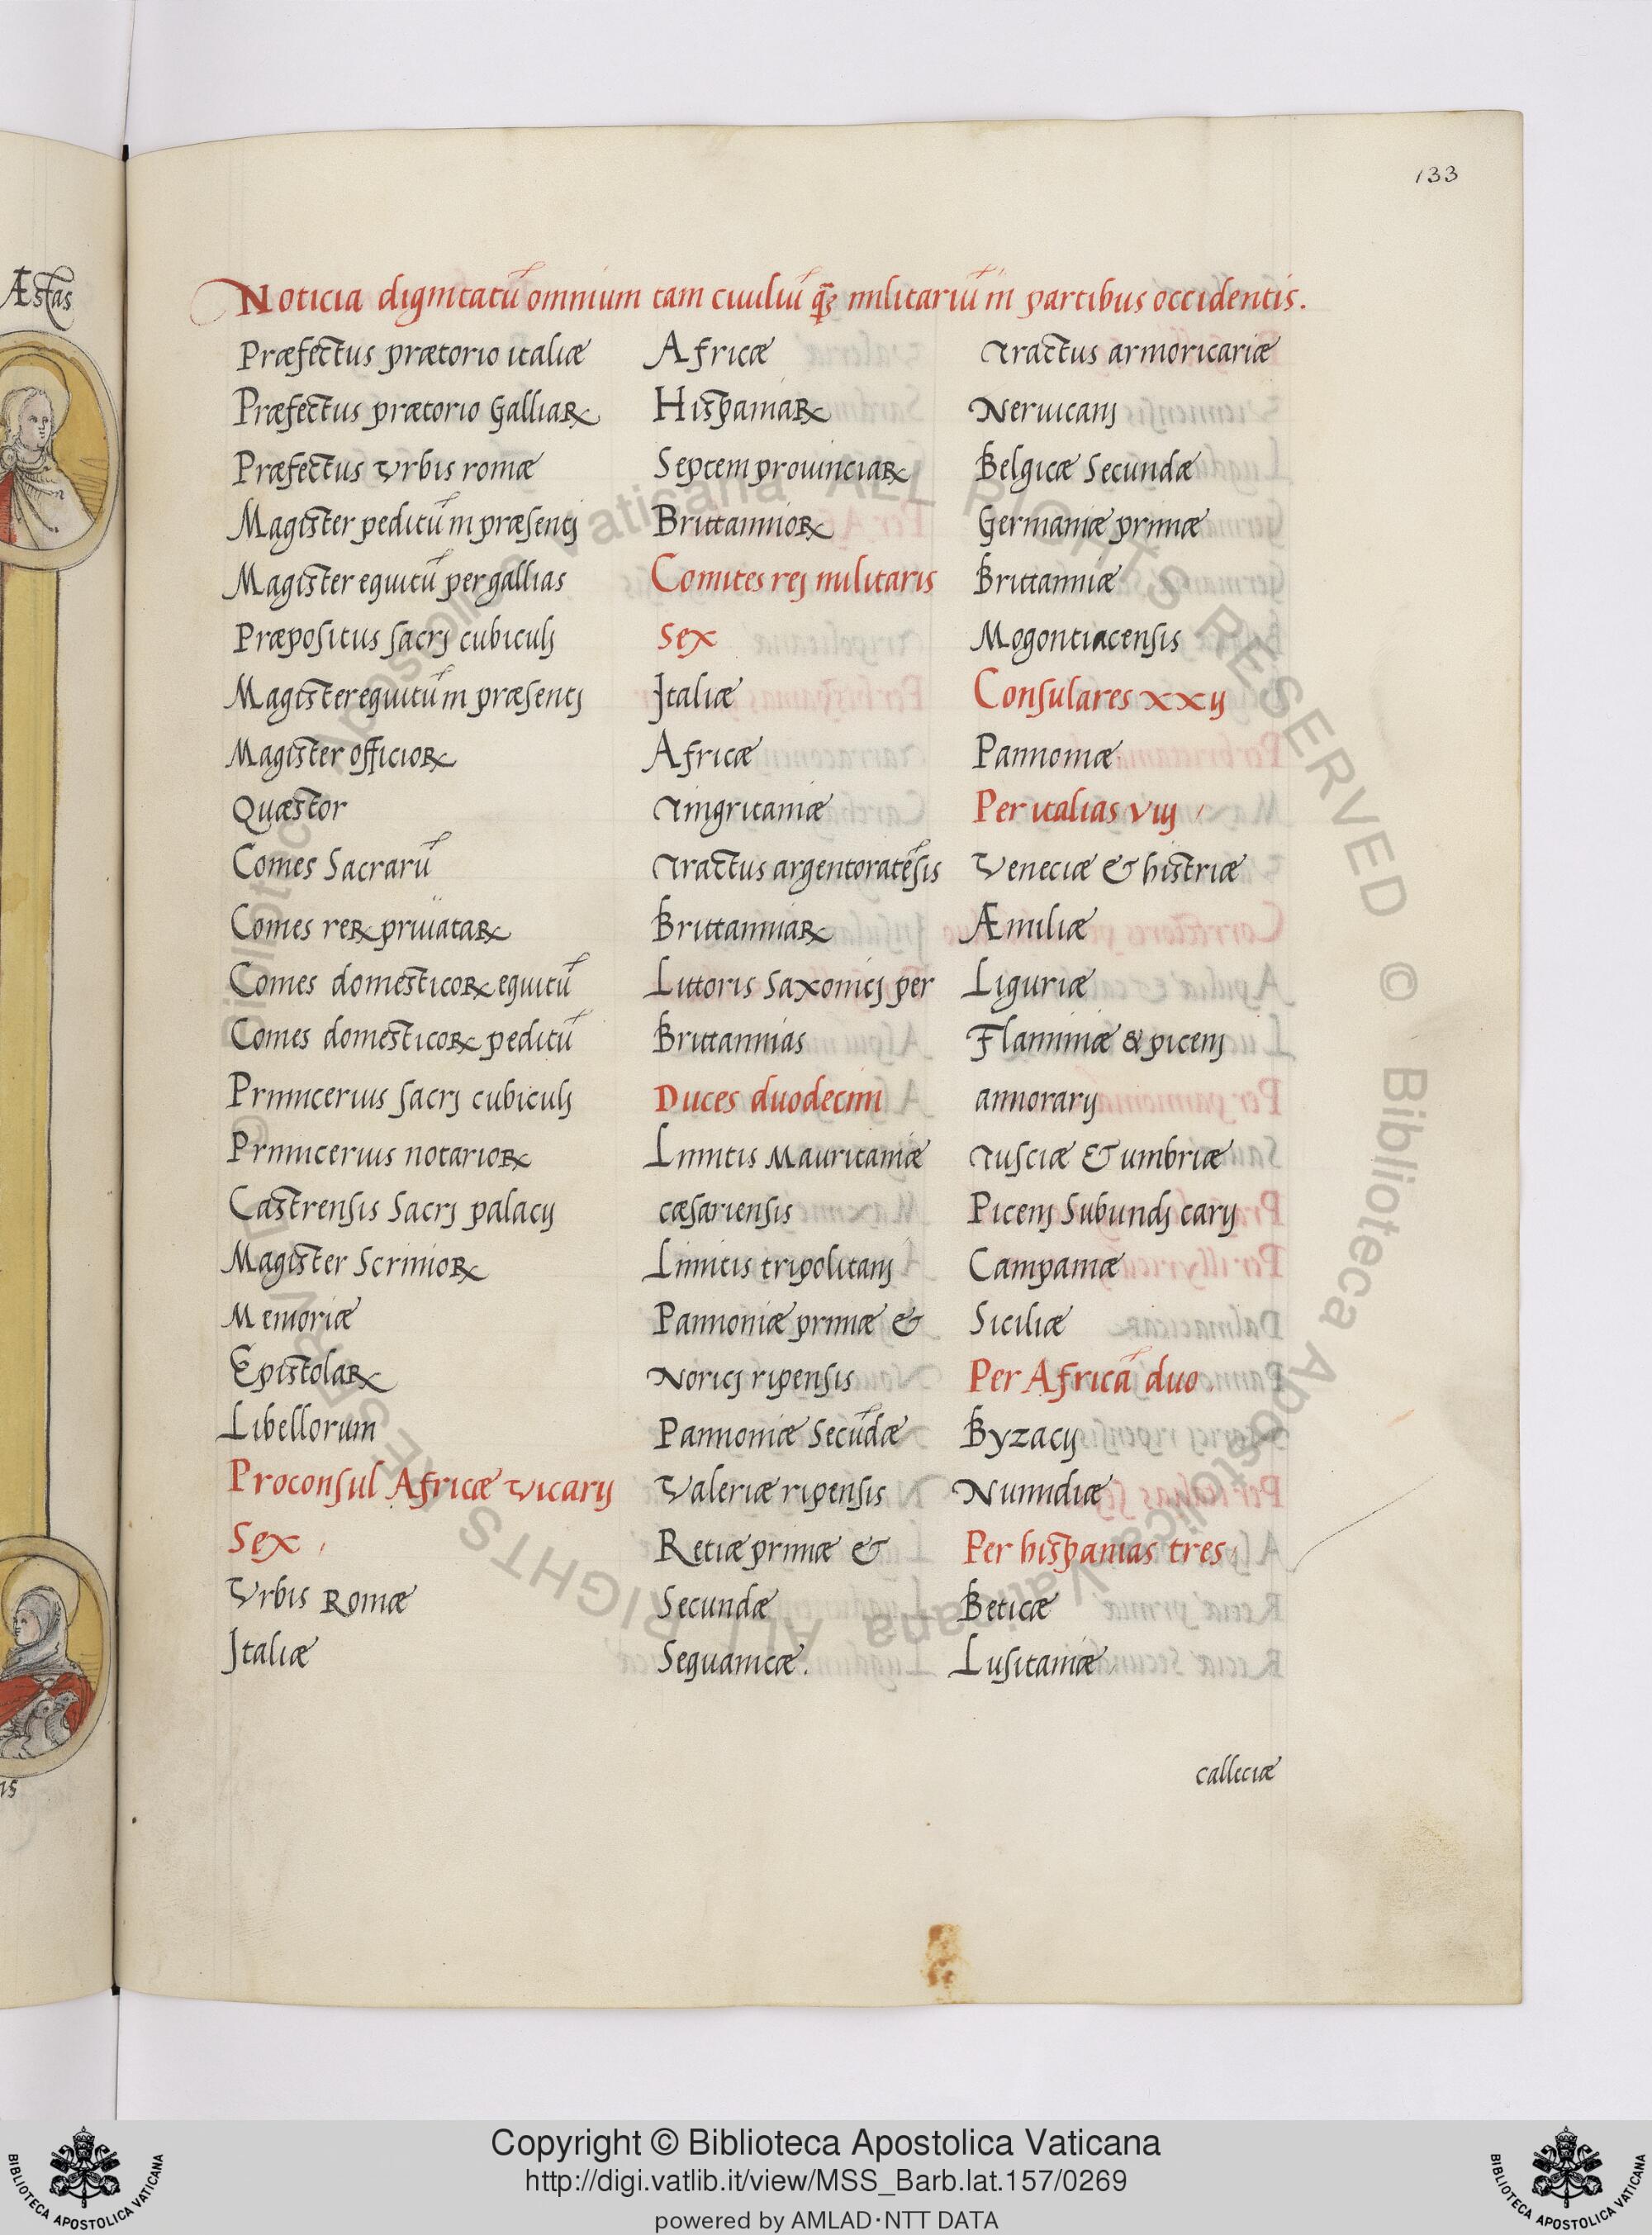 133
Æstas
Noticia dignitatū omnium tam ciuiliū q̃ꝫ militariū in partibus occidentis.
Præfectus prætorio italiæ
Præfectus prætorio Galliaꝝ
Præfectus Vrbis romæ
Magister peditū in præsentj
Magister equitū per gallias
Præpositus sacrj cubiculj
Magister equitū in præsentj
Magister officioꝝ
Quæstor
Comes Sacrarū
Comes reꝝ priuataꝝ
Comes domesticoꝝ equitū
Comes domesticoꝝ peditū
Primicerius sacrj cubiculj
Primicerius notarioꝝ
Castrensis Sacrj palacij
Magister Scrinioꝝ
Memoriæ
Epistolaꝝ
Libellorum
Proconsul Africæ Vicarij
Sex
Vrbis Romæ
Italiæ
Africæ
Hispaniaꝝ
Septem prouinciaꝝ
Brittannioꝝ
Comites rej militaris
sex
Italiæ
Africæ
Tingritaniæ
Tractus argentoratēsis
Brittanniaꝝ
Littoris Saxonicj per
Brittannias
Duces duodecim
Limitis Mauritaniæ
cæsariensis
Limitis tripolitanj
Pannoniæ primæ &
Noricj ripensis
Pannoniæ Secūdæ
Valeriæ ripensis
Retiæ primæ &
Secundæ
Sequanicæ.
Tractus armoricariæ
Neruicanj
Belgicæ Secundæ
Germaniæ primæ
Brittanniæ
Mogontiacensis
Consulares xxij
Pannoniæ
Per italias viij
Veneciæ & histriæ
Æmiliæ
Liguriæ
Flaminiæ & picenj
annorarij
Tusciæ & umbriæ
Picenj Subundj carij
Campaniæ
Siciliæ
Per Africā duo.
Byzacij
Numidiæ
Per hispanias tres
Beticæ
Lusitaniæ
calleciæ
Copyright © Biblioteca Apostolica Vaticana
http://digi.vatlib.it/view/MSS_Barb.lat.157/0269
powered by AMLAD·NTT DATA
BIBLIOTECA APOSTOLICA VATICANA
BIBLIOTECA APOSTOLICA VATICANA
© Biblioteca Apostolica Vaticana ALL RIGHTS RESERVED © Biblioteca Apostolica Vaticana ALL RIGHTS RESERVED